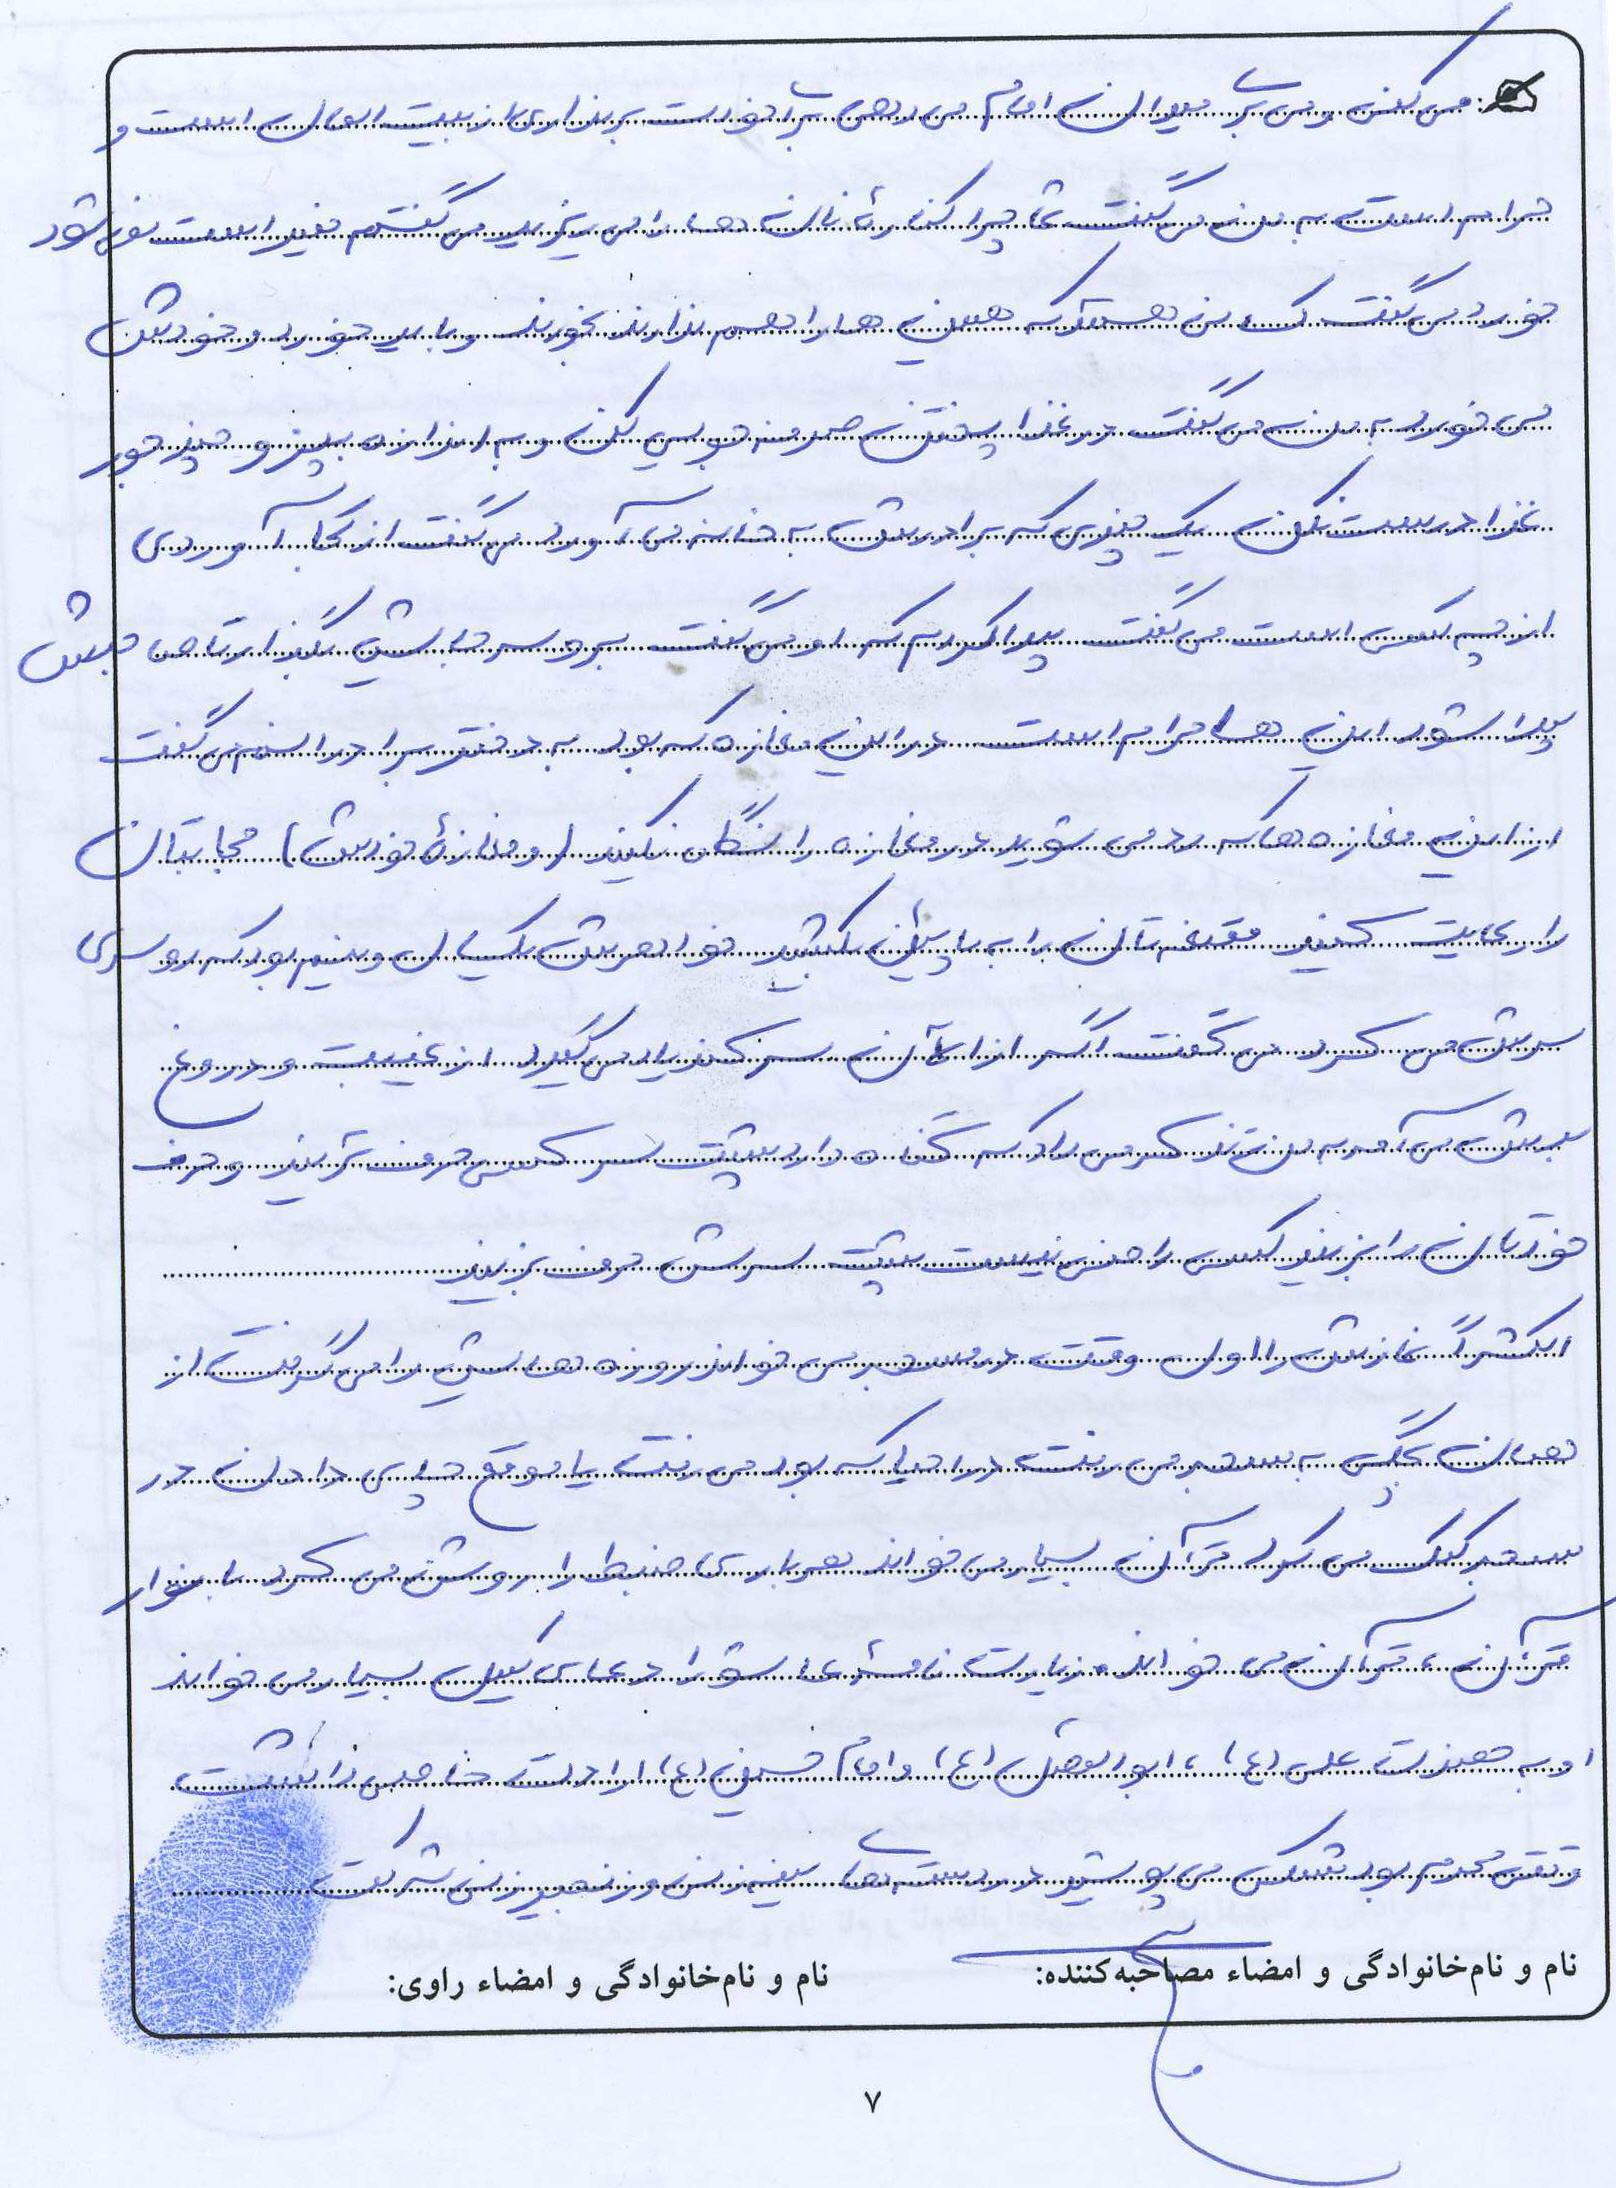 می کنی و می بری میدان امام می دهی برا خودت برنداری از بیت المال است و
حرام است به من می گفت شما چرا کنارهٔ نان ها را می ریزید می گفتم خمیر است نمی شود
خورد می گفت کسانی هستند که همین ها را هم ندارند بخورند و باید خورد و خودش
می خورد به من می گفت در غذا پختن صرفه جویی کن و به اندازه بپز و چند جور
غذا درست نکن یک چیزی که برادرش به خانه می آورد می گفت از کجا آوردی
از چه کسی است می گفت پیدا کردم که او می گفت برو سر جایش بگذار تا صاحبش
پیدا شود این ها حرام است در این مغازه که بود به دختر برادرانش می گفت
از این مغازه ها که رد می شوید در مغازه را نگاه نکنید (و مغازهٔ خودش) حجابتان
را رعایت کنید مقنعه تان را به پایین بکشید خواهرش یکسال و نیم بود که روسری
سرش می کرد می گفت اگر از الآن سر کند یاد می گیرد از غیبت و دروغ
بدش می آمد به من تذکر می داد که گناه دارد پشت سر کسی حرف نزنید و حرف
خودتان را بزنید کسی راضی نیست پشت سرش حرف بزنید
اکثراً نمازش را اول وقت در مسجد می خواند روزه هایش را می گرفت از
همان بچگی به مسجد می رفت در احیا که بود می رفت یا موقع چایی دادن در
مسجد کمک می کرد قرآن بسیار می خواند هر باری ضبط را روشن می کرد با نوار
قرآن، قرآن می خواند زیارت نامهٔ عاشورا دعای کمیل بسیار می خواند
او به حضرت علی (ع)، ابوالفضل (ع) و امام حسین (ع) ارادت خاصی داشت
وقتی محرم بود مشکی می پوشید در دسته های سینه زنی و زنجیر زنی شرکت
نام و نام‌خانوادگی و امضاء مصاحبه‌کننده: نام و نام‌خانوادگی و امضاء راوی:
۷